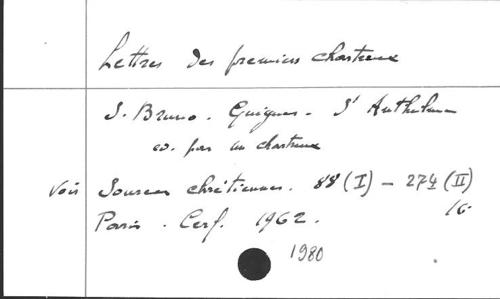 Lettres des premiers chartreux
S. Bruno. Guigues. St Anthelme
ed. par un chartreux
Voir Sources chrétiennes. 88 (I) - 274 (II)
Paris. Cerf. 1962. 16
1980